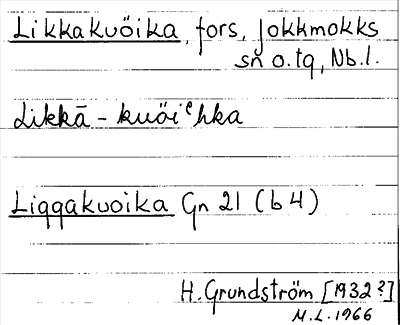 Likkakuöika, fors, Jokkmokks
sn o. tg, Nb.l.
Likkā - kuöiᵉhka
Liggakuoika Gn 21 (b 4)
H. Grundström [1932?]
M.L. 1966